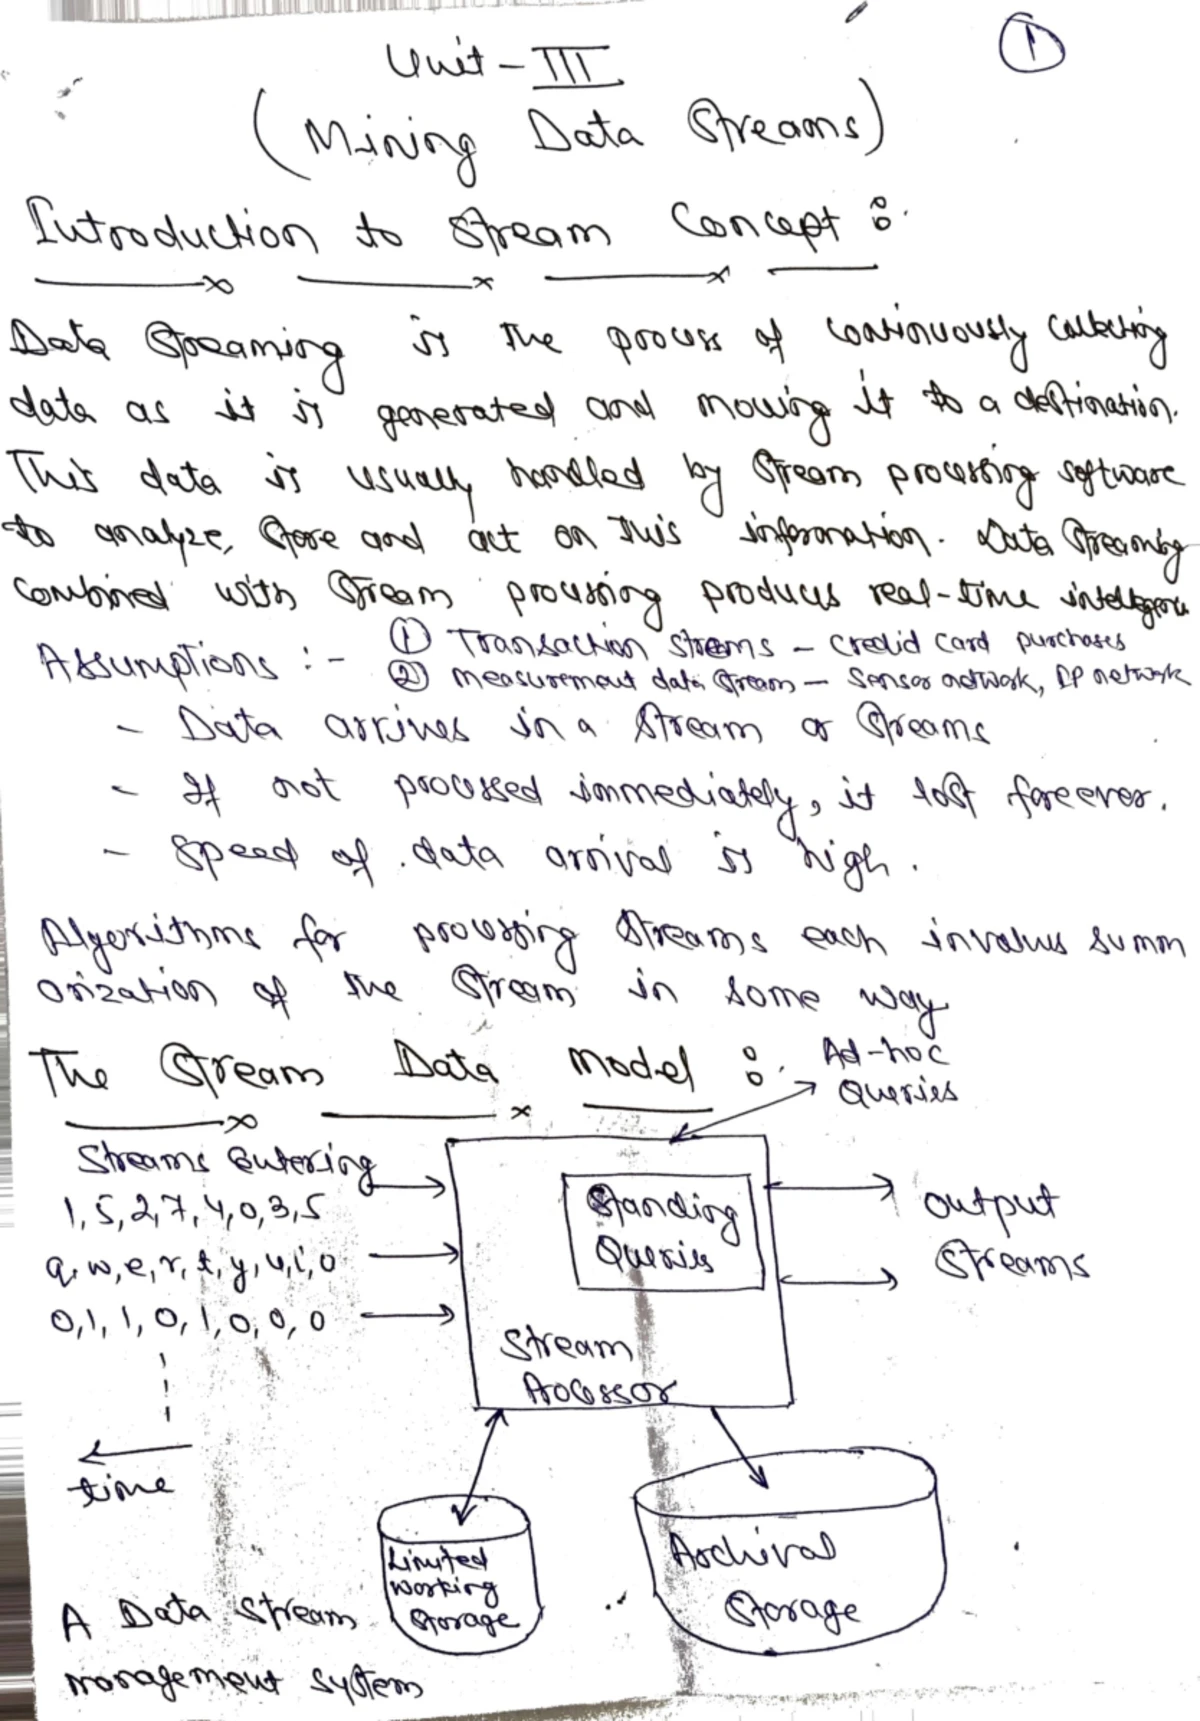 1
Unit - III
(Mining Data Streams)
Introduction to Stream Concept :
Data Streaming is the process of continuously collecting
data as it is generated and moving it to a destination.
This data is usually handled by Stream processing software
to analyze, store and act on this information. Data Streaming
combined with stream processing produces real-time intelligence
Assumptions :- ① Transaction streams - credid card purchases
② measurement data stream - Sensor network, IP network
- Data arrives in a stream or streams
- If not processed immediately, it lost foreever.
- Speed of data arrival is high.
Algorithms for processing streams each involves summ
arization of the stream in some way
The Stream Data Model :
Ad-hoc
Queries
Streams Entering
1,5,2,7,4,0,3,5
q,w,e,r,t,y,u,i,o
0,1,1,0,1,0,0,0
time
Standing
Queries
Stream
Processor
Output
Streams
Limited
working
Storage
Archival
Storage
A Data Stream
management system